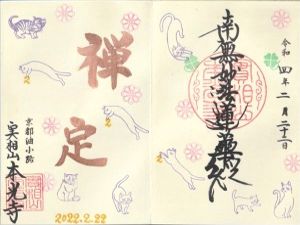 令和四年二月二十二日
南無妙法蓮華経
禅定
京都油小路
実相山本光寺
2022.2.22
2
2
2